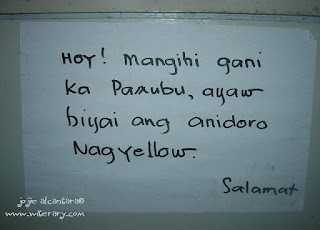 HOY! mangihi gani
ka Parubu, ayaw
biyai ang anidoro
Nagyellow.
Salamat
jojie alcantara©
www.witerary.com